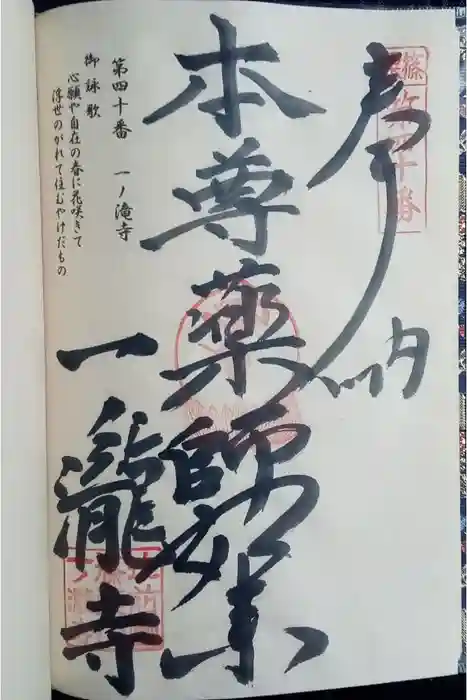 奉拝
本尊薬師如来
一瀧寺
第四十番　一ノ滝寺
御詠歌
心願や自在の春に花咲きて
浮世のがれて住むやけだもの